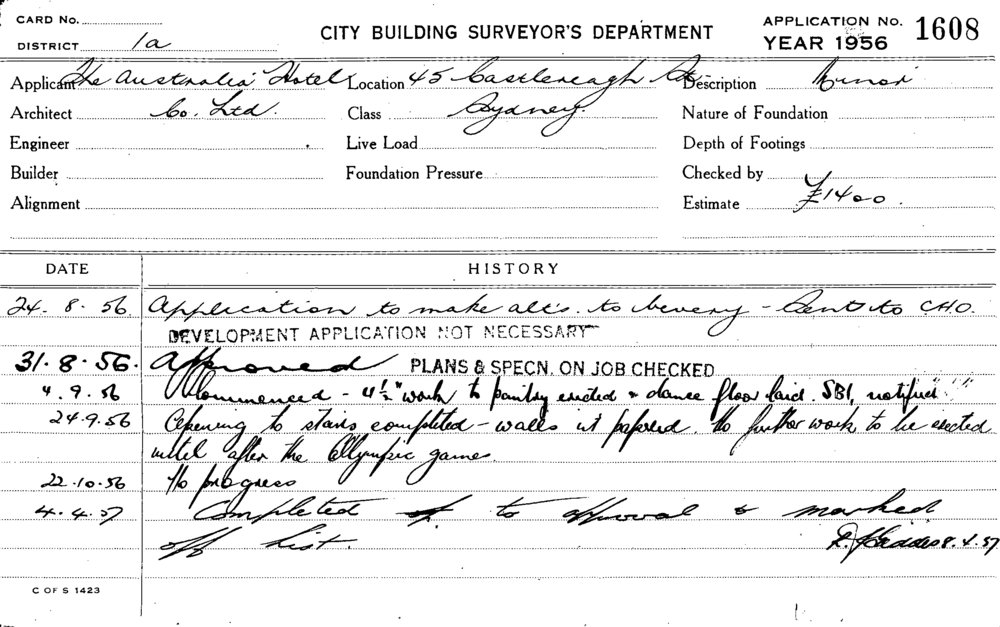 CARD No.
DISTRICT 1a
CITY BUILDING SURVEYOR'S DEPARTMENT
APPLICATION No. 1608
YEAR 1956
Applicant The Australia Hotel Location 45 Castlereagh St. Description Minor
Architect Co. Ltd. Class Sydney. Nature of Foundation
Engineer Live Load Depth of Footings
Builder Foundation Pressure Checked by
Alignment Estimate £1400.
DATE HISTORY
24. 8. 56. Application to make alts. to - Sent to C.H.O.
DEVELOPMENT APPLICATION NOT NECESSARY
31. 8. 56. Approved PLANS & SPECN. ON JOB CHECKED
4. 9. 56 Commenced - 4½" work to pantry erected & dance floor laid. SBI, notified
24.9.56 Opening to stairs completed - walls papered. No further work to be erected
until after the Ollympic games.
22.10.56 No progress
4.4.57 Completed to approval & marked
off list. 8.4.57
C OF S 1423